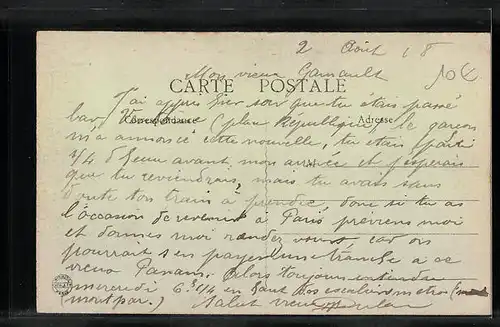 2 Août 18
10€
Mon vieux
CARTE POSTALE
J'ai appris hier soir que tu étais passé
Correspondance
Adresse
bar (place République) le garçon
m'a annoncé cette nouvelle, tu étais parti
1/4 d'heure avant mon arrivée et j'espérais
que tu reviendrais, mais tu avais sans
doute ton train à prendre, donc si tu as
l'occasion de revenir à Paris préviens moi
et donnes moi rendez vous, car on
pourrait s'en payer une tranche à ce
vieux Panam. Alors toujours entendu
mercredi 6h 1/4 en haut des escaliers métro
Salut vieux